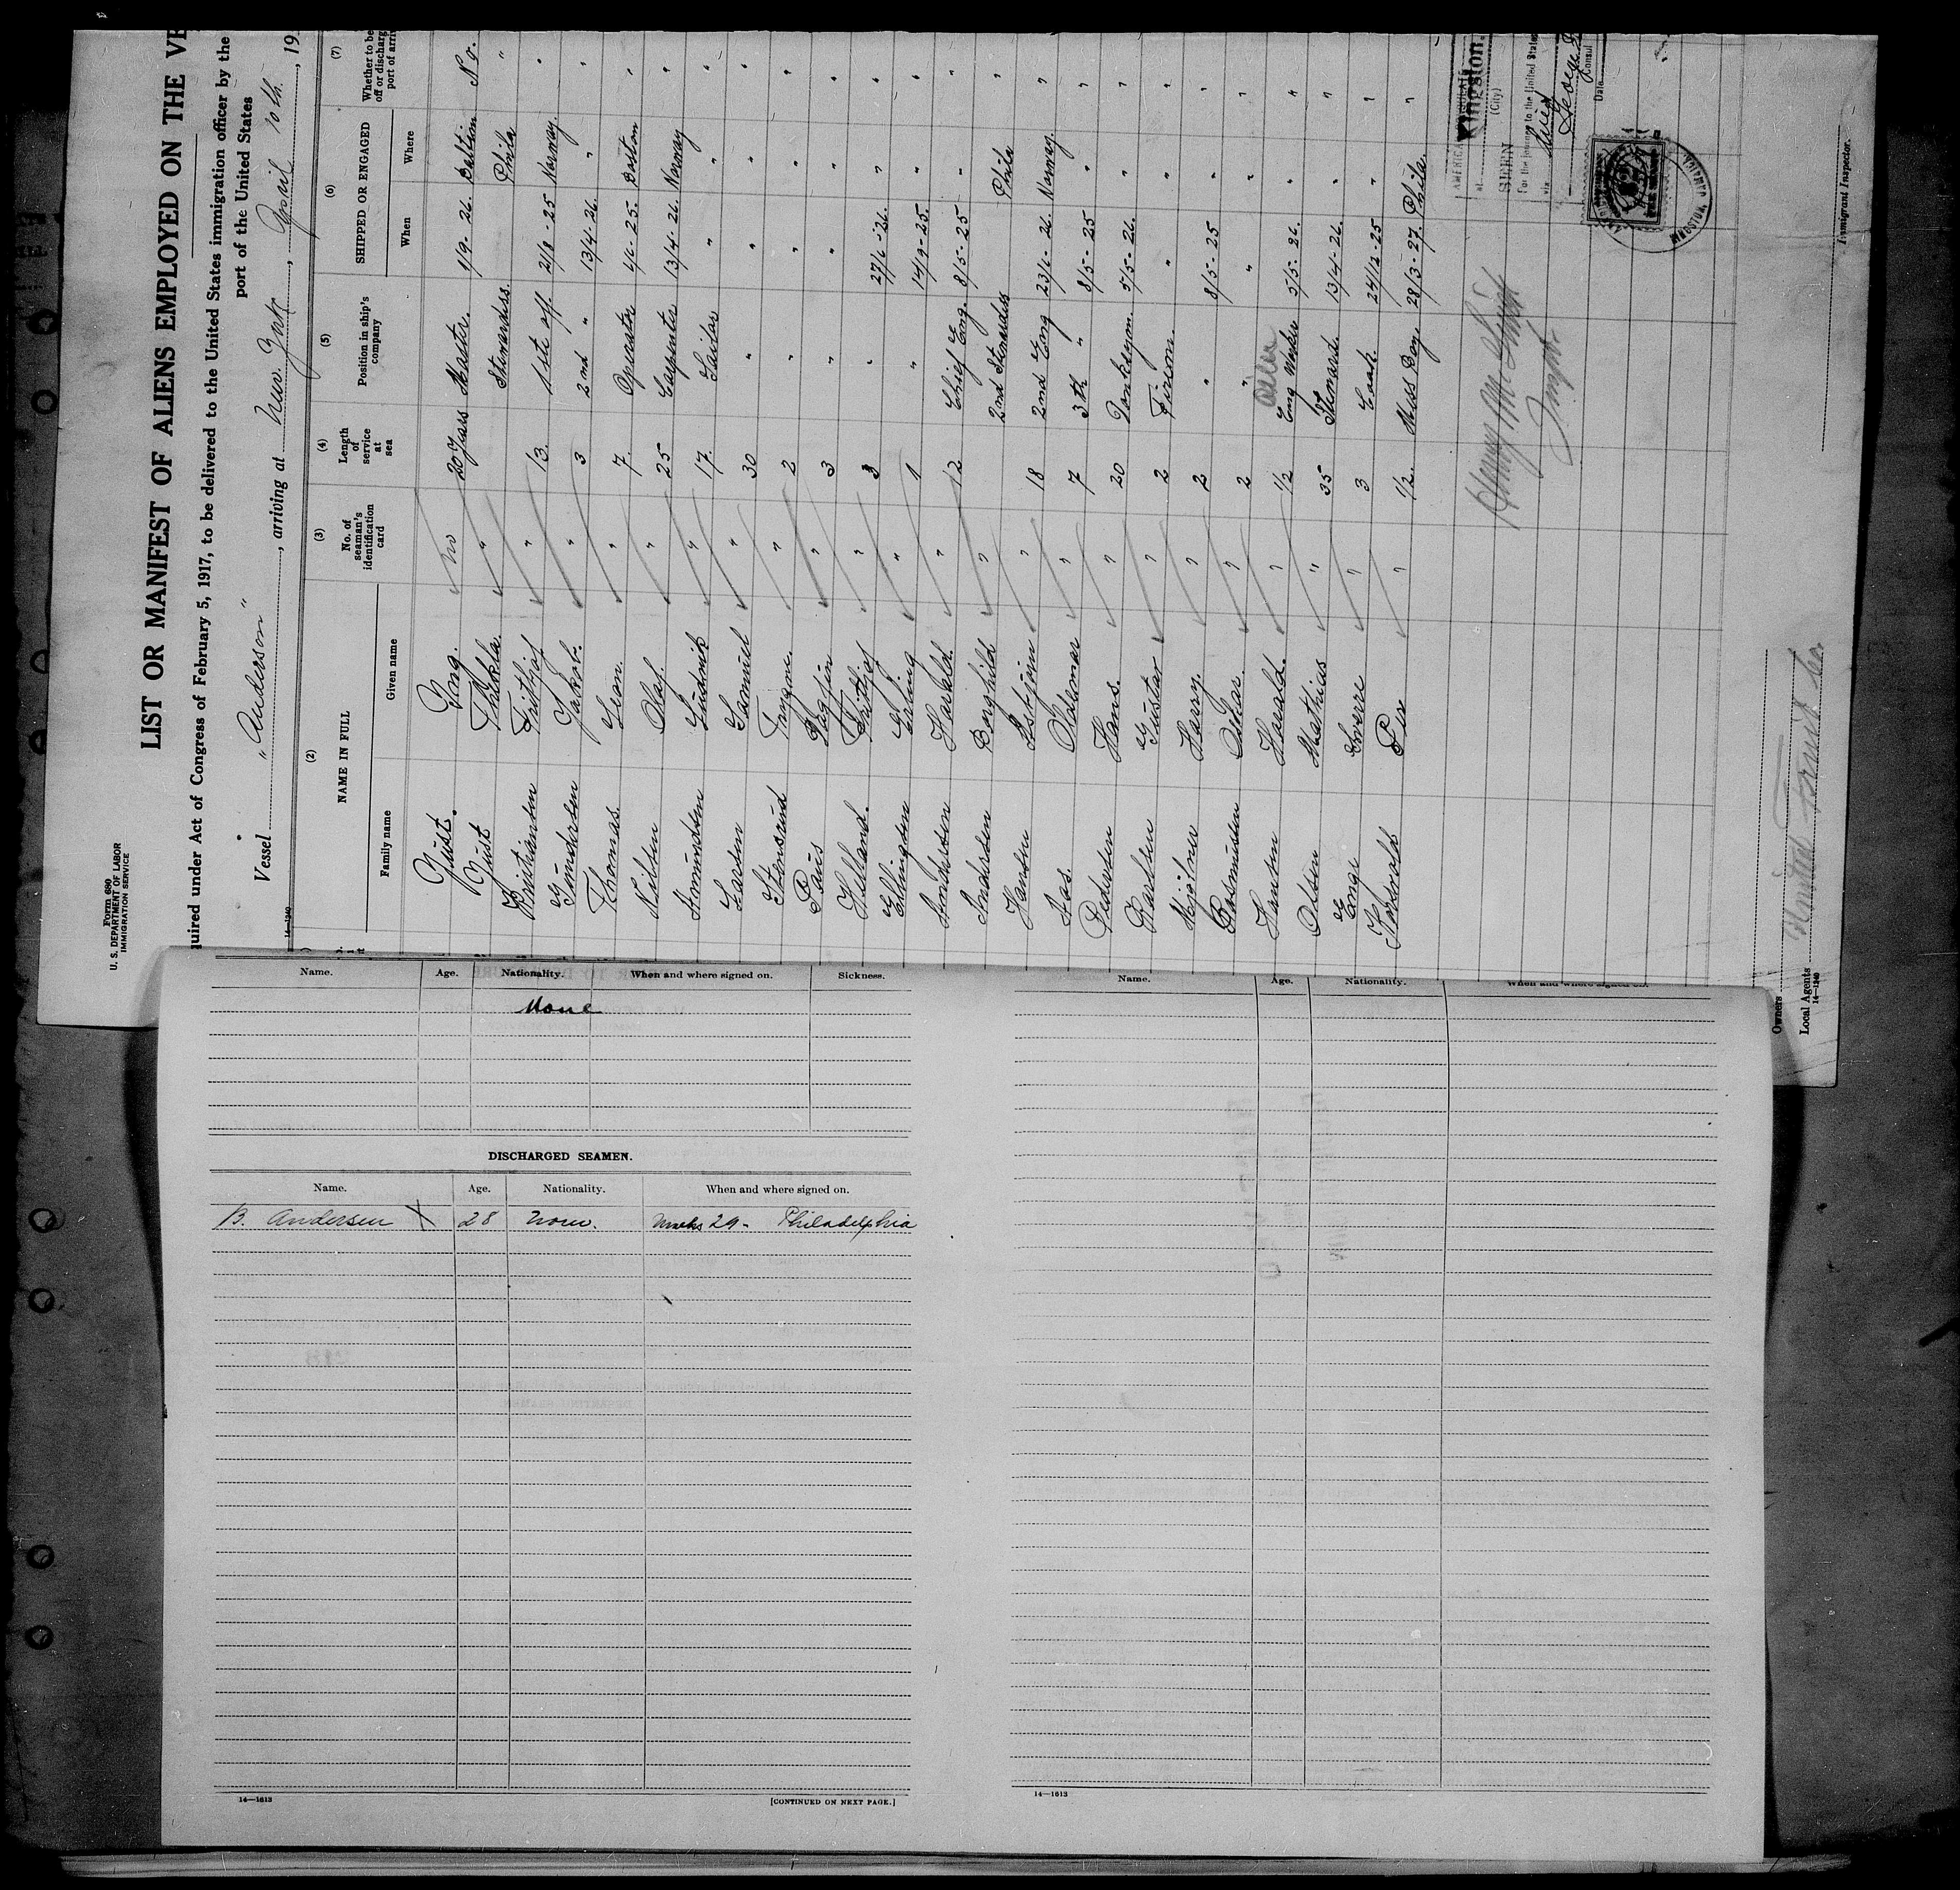 Form 680
U. S. DEPARTMENT OF LABOR
IMMIGRATION SERVICE
LIST OR MANIFEST OF ALIENS EMPLOYED ON THE VE
quired under Act of Congress of February 5, 1917, to be delivered to the United States immigration officer by the
port of the United States
Vessel "Anderson", arriving at New. York, April 10th., 19
14—1240
(2) (3) (4) (5) (6) (7)
NAME IN FULL No. of seaman's identification card Length of service at sea Position in ship's company SHIPPED OR ENGAGED Whether to be off or discharg port of arri
Family name Given name When Where
Just. No 20 Years Master. 1/9-26. No.
Just Thekla. " Stewardess. Phila "
Kristiansen Fritjof " 13. 1st off. Norway. "
Gundersen Jakob. " 3 2nd " 13/4-26. " "
Thomas. Leon. " 7. Operator Boston "
Nilsen Olaf. " 25 Carpenter 13/4-26. Norway "
Amundsen Ludvik " 17. Sailor " " "
Larsen Samuel " 30 " " " "
Stensrud Trygve. " 2 " " " "
Paus " 3 " " " "
Helland. " 3 " 27/6-26. " "
Ellingsen Erling " 1 " 14/9-25. " "
Andersen Harald. " 12 Chief Eng. 8/5-25 " "
Andersen Borghild " 2nd Stewardess Phila "
Hansen Asbjørn " 18 2nd Eng 23/6-26. Norway. "
Aas. " 7 3th " 8/5-25 " "
Pedersen Hans. " 20 Donkeym. 5/5-26. " "
Karlsen Gustav " 2 Firem. " " "
Harry. " 2 " 8/5-25 " "
Rasmussen Oskar. " 2 " " " "
Hansen Harald. " 1/2 Oiler 5/5-26. " "
Olsen Mathias " 35 Steward. 13/4-26. " "
Enge Sverre " 3 Cook. 24/12-25 " "
Per " 1/2. Mess Boy. 28/3-27. Phila. "
at Kingston.
(City)
SEEN
For the journey to the United States
via
Consul
Date
KINGSTON, JAMAICA
Immigrant Inspector.
Owners
Local Agents United Fruit Co.
14—1240
Name. Age. Nationality. When and where signed on. Sickness.
None
DISCHARGED SEAMEN.
Name. Age. Nationality. When and where signed on.
B. Andersen X 28 Norw. 29- Philadelphia
14—1613 [CONTINUED ON NEXT PAGE.]
Name. Age. Nationality. When and where signed on.
14—1613